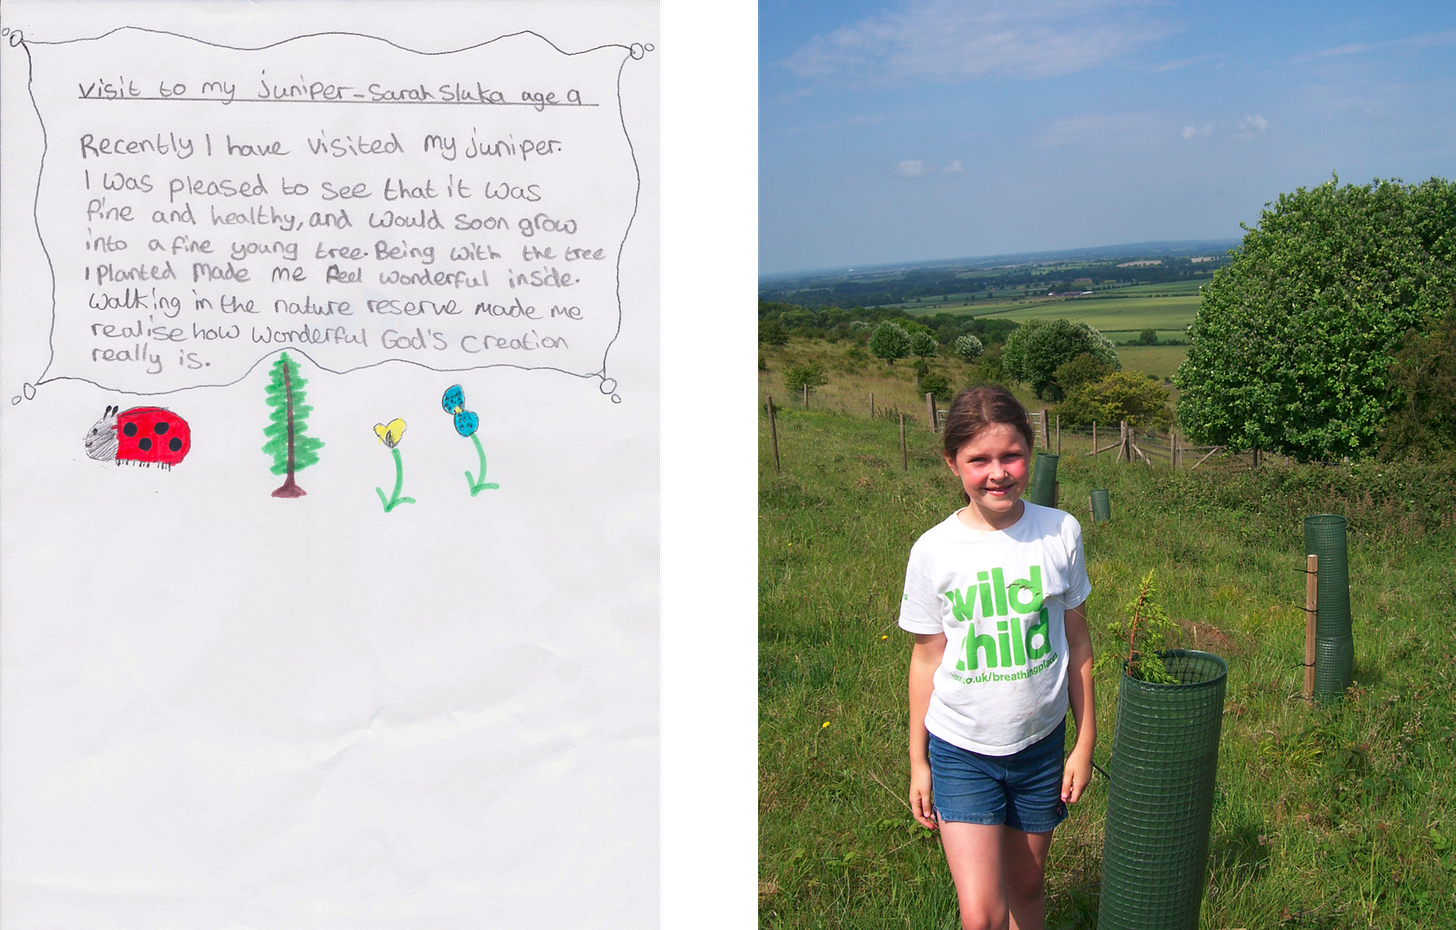 Visit to my juniper - Sarah Sluka age 9
Recently I have visited my juniper.
I was pleased to see that it was
fine and healthy, and would soon grow
into a fine young tree. Being with the tree
I planted made me feel wonderful inside.
Walking in the nature reserve made me
realise how wonderful God's creation
really is.
wild
child
.co.uk/breathingplaces